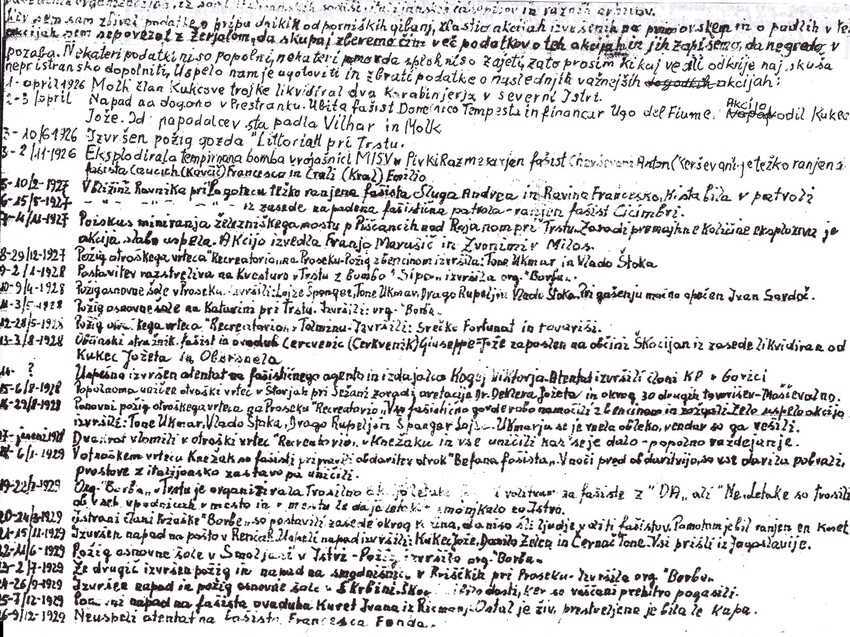 Ker sem sam zbiral podatke o pripadnikih odporniških gibanj, zlasti o akcijah izvršenih na primorskem in o padlih v teh
akcijah, sem se povezal z Žerjalom, da skupaj zberemo čim več podatkov o teh akcijah in jih zapišemo, da ne gredo v
pozabo. Nekateri podatki niso popolni, nekateri morda sploh niso zajeti, zato prosim, ki kaj ve ali odkrije naj skuša
nepristransko dopolniti. Uspelo nam je ugotoviti in zbrati podatke o naslednjih važnejših akcijah:
1- april 1926 Molk član Kukčeve trojke likvidiral dva karabinjerja v severni Istri.
2-3/april Napad na dogano v Prestranku. Ubita fašist Domenico Tempesta in financar Ugo del Fiume. Akcijo vodil Kukec
Jože. Od napadalcev sta padla Vilhar in Molk
3-10/6-1926 Izvršen požig gozda "Littoria" pri Trstu.
3-2/11-1926 Eksplodirala tempirana bomba v vojašnici MISV v Pivki Razmerarjen fašist Anton (Kerševan), težko ranjena
fašista Caucich (Kovač) Francesco in Crali (Kralj) Emilio
5-10/2-1927 V bližini Ravnika pri Logatcu težko ranjena fašista Sluga Andrea in Ravina Francesko, ki sta bila v patroli
6-15/5-1927 - " - " - " - iz zasede napadena fašistična patrola - ranjen fašist Cicimbri.
7-4/11-1927 Poizkus miniranja železniškega mostu v Piščancih nad Rojanom pri Trstu. Zaradi premajhne količine eksploziva je
akcija slabo uspela. Akcijo izvedla Franjo Marušič in Zvonimir Miloš.
8-29/12-1927 Požig otroškega vrteca "Recreatorio" na Proseku - Požig z bencinom izvršila: Tone Ukmar in Vlado Štoka
9-2/4-1928 Postavitev razstreliva na Kvesturo v Trstu z bombo "Sipe" izvršila org. "Borba".
10-9/4-1928 Požig osnovne šole v Proseku. Izvršili: Lojze Španger, Tone Ukmar, Drago Rupel in Vlado Štoka. Pri gašenju močno opečen Ivan Gardoš.
11-3/5-1928 Požig osnovne šole na Katinari pri Trstu. Izvršili: org. "Borba".
12-28/5-1928 Požig otroškega vrteca "Recreatorio" v Tolminu - Izvršili: Srečko Fortunat in tovariši.
13-3/8-1928 Občinski stražnik, fašist in ovaduh Cerevenic (Cerkvenik) Giuseppe-Jože zaposlen na občini Škocijan iz zasede likvidiran od
Kukec Jožeta in Obersnela
14- ? Uspešno izvršen atentat na fašističnega agenta in izdajalca Kogej Viktorja - Atentat izvršili člani KP v Gorici
15-6/8-1928 Popolnoma uničen otroški vrtec v Štorjah pri Sežani zaradi aretacije Dr. Dekleva Jožeta in okrog 30 drugih tovarišev - Maščevalno.
16-29/8-1928 Ponovni požig otroškega vrteca na Proseku "Recreatorio". Vso fašistično garderobo namočili z bencinom in zažgali. Zelo uspela akcija
izvršili: Tone Ukmar, Vlado Štoka, Drago Rupel in Španger Lojze. Ukmarju se je vnela obleko, vendar so ga rešili.
17-jeseni 1928 Dvakrat vlomili v otroški vrtec "Recreatorio" v Knežaku in vse uničili kar se je dalo - popolno razdejanje.
18-6/1-1929 V otroškem vrtecu Knežak so fašisti pripravili obdaritev otrok "Befana fašista". V noči pred obdaritvijo, so vse darila pobrali,
prostore z italijansko zastavo pa uničili.
19-22/3-1929 Org. "Borba" v Trstu je organizirala trosilno akcijo letakov volitvam za fašiste z "DA" ali "Ne". Letake so trosili
ob vseh vpadnicah v mesto in v mestu
20-24/3-1929 Istrani člani tržaške "Borbe" so postavili zasede okrog Pazina, da niso šli ljudje volit fašistov. Pomotoma je bil ranjen en kmet
21-15/11-1929 Izvršen napad na pošto v Renčah. Uspeli napad izvršili Kukec Jože, Danilo Zelen in Černač Tone. Vsi prišli iz Jugoslavije.
22-11/6-1929 Požig osnovne šole v Smoljanci v Istri - Požig izvršila org. "Borba".
23-2/7-1929 Že drugič izvršen požig in napad na smodnišnico v Kriščkih pri Proseku - Izvršila org. "Borba".
24-26/9-1929 Izvršen napad in požig osnovne šole v Skrbini. Škode ni bilo dosti, ker so vaščani prehitro pogasili.
25-7/12-1929 Ponovni napad na fašista ovaduha Kuret Ivana iz Ricmanj. Ostal je živ, prestreljena je bila le kapa.
26-9/12-1929 Neuspeli atentat na fašista Francesca Fonda.